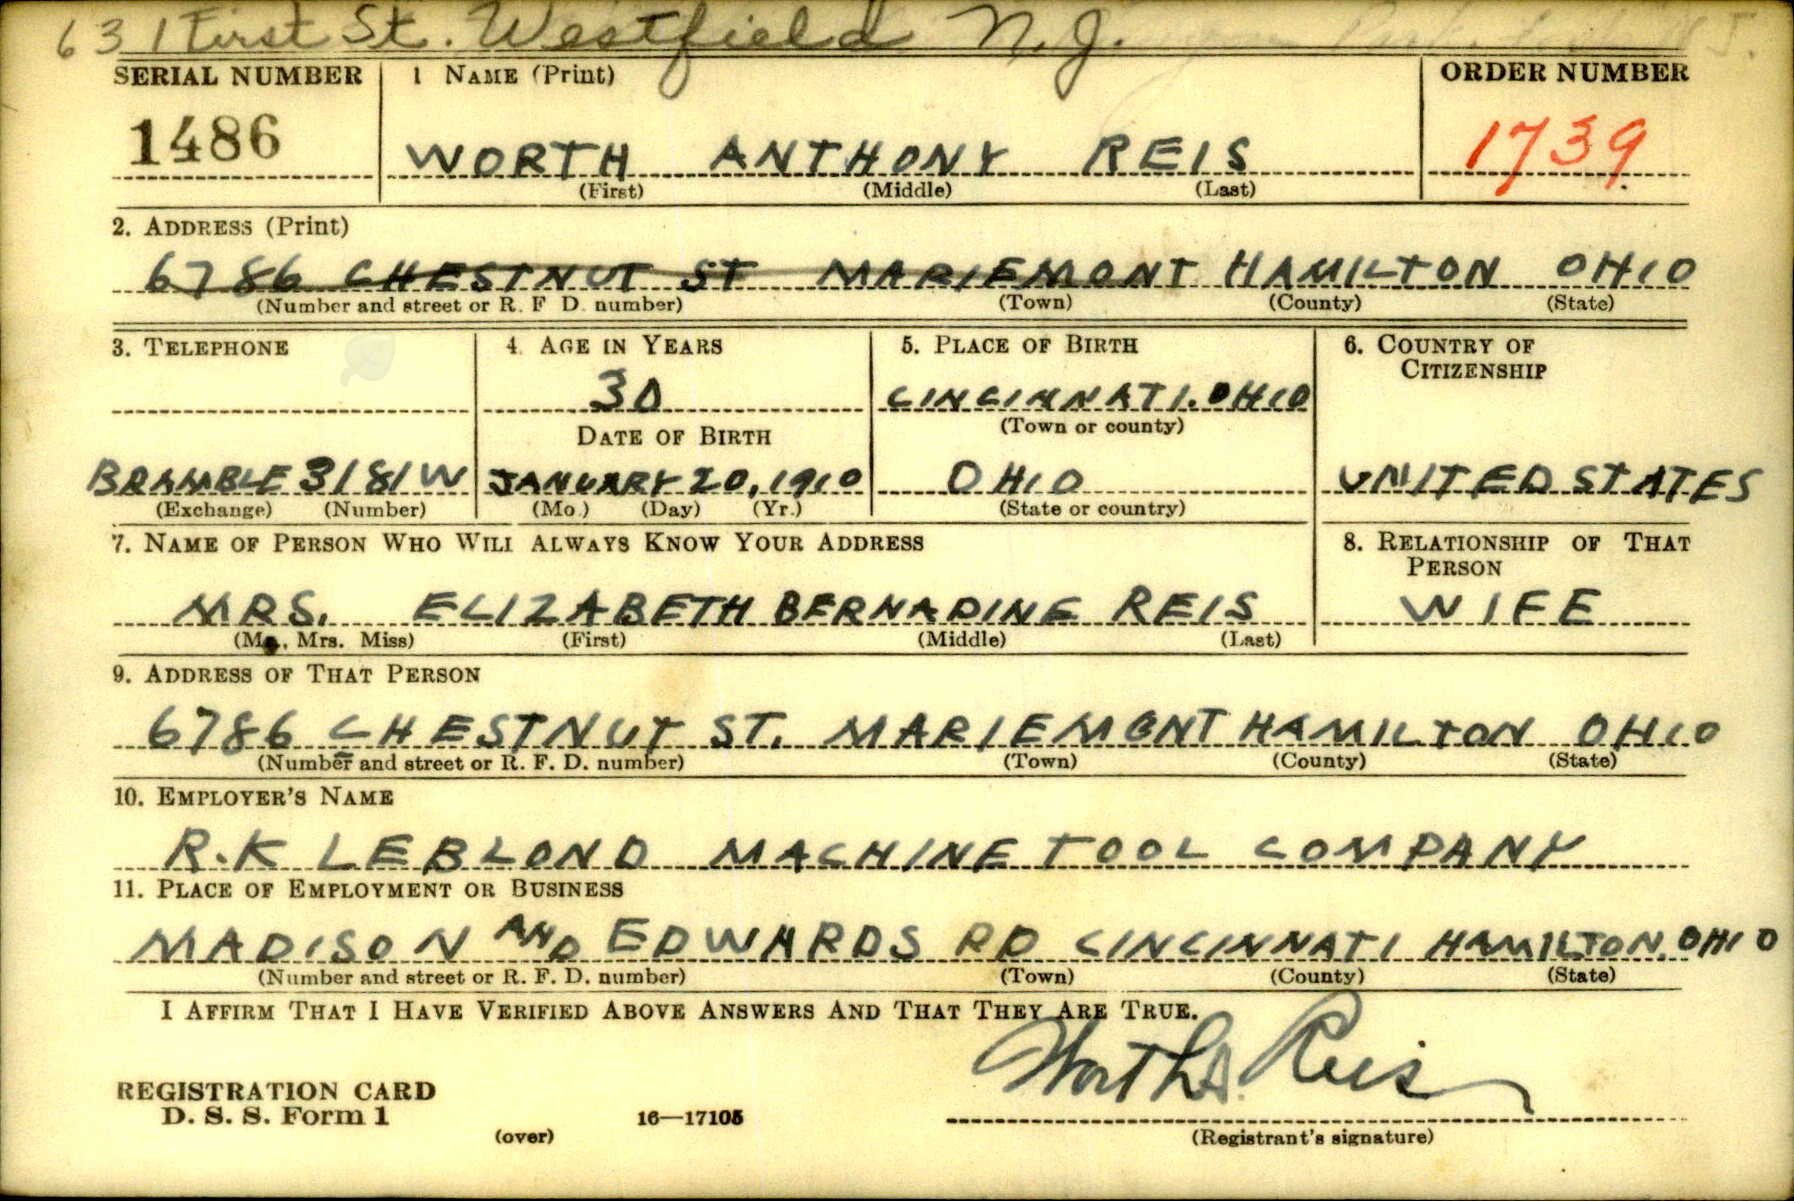 631 First St. Westfield N.J.
SERIAL NUMBER 1 NAME (Print) ORDER NUMBER
1486 WORTH ANTHONY REIS 1739
(First) (Middle) (Last)
2. ADDRESS (Print)
6786 CHESTNUT ST MARIEMONT HAMILTON OHIO
(Number and street or R. F. D. number) (Town) (County) (State)
3. TELEPHONE 4. AGE IN YEARS 5. PLACE OF BIRTH 6. COUNTRY OF
CITIZENSHIP
30 CINCINNATI. OHIO
DATE OF BIRTH (Town or county)
BRAMBLE 3181W JANUARY 20, 1910 OHIO UNITED STATES
(Exchange) (Number) (Mo.) (Day) (Yr.) (State or country)
7. NAME OF PERSON WHO WILL ALWAYS KNOW YOUR ADDRESS 8. RELATIONSHIP OF THAT
PERSON
MRS. ELIZABETH BERNADINE REIS WIFE
(Mr., Mrs. Miss) (First) (Middle) (Last)
9. ADDRESS OF THAT PERSON
6786 CHESTNUT ST. MARIEMONT HAMILTON OHIO
(Number and street or R. F. D. number) (Town) (County) (State)
10. EMPLOYER'S NAME
R.K LEBLOND MACHINE TOOL COMPANY
11. PLACE OF EMPLOYMENT OR BUSINESS
MADISON AND EDWARDS RD CINCINNATI HAMILTON. OHIO
(Number and street or R. F. D. number) (Town) (County) (State)
I AFFIRM THAT I HAVE VERIFIED ABOVE ANSWERS AND THAT THEY ARE TRUE.
Worth A. Reis
REGISTRATION CARD
D. S. S. Form 1 16—17105
(over) (Registrant's signature)